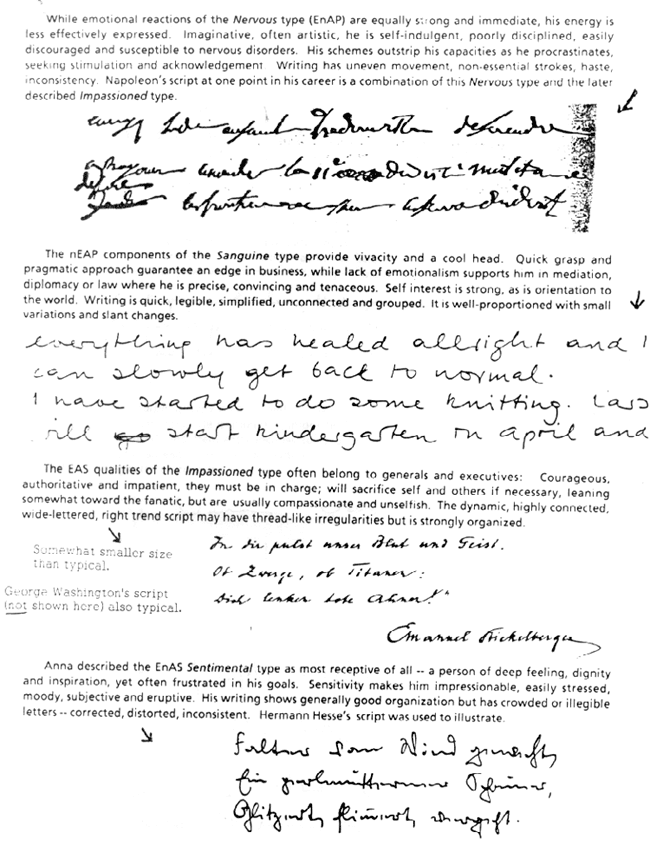 While emotional reactions of the Nervous type (EnAP) are equally strong and immediate, his energy is
less effectively expressed. Imaginative, often artistic, he is self-indulgent, poorly disciplined, easily
discouraged and susceptible to nervous disorders. His schemes outstrip his capacities as he procrastinates,
seeking stimulation and acknowledgement Writing has uneven movement, non-essential strokes, haste,
inconsistency. Napoleon's script at one point in his career is a combination of this Nervous type and the later
described Impassioned type.
The nEAP components of the Sanguine type provide vivacity and a cool head. Quick grasp and
pragmatic approach guarantee an edge in business, while lack of emotionalism supports him in mediation,
diplomacy or law where he is precise, convincing and tenaceous. Self interest is strong, as is orientation to
the world. Writing is quick, legible, simplified, unconnected and grouped. It is well-proportioned with small
variations and slant changes.
everything has healed allright and I
can slowly get back to normal.
I have started to do some knitting. Lars
ill go start kindergarten in april and
The EAS qualities of the Impassioned type often belong to generals and executives: Courageous,
authoritative and impatient, they must be in charge; will sacrifice self and others if necessary, leaning
somewhat toward the fanatic, but are usually compassionate and unselfish. The dynamic, highly connected,
wide-lettered, right trend script may have thread-like irregularities but is strongly organized.
Somewhat smaller size
than typical.
George Washington's script
(not shown here) also typical.
In dir pulst unser Blut und Geist.
Ob Zwerge, ob Titanen:
Dich lenken tote Ahnen!"
Emanuel Stickelberger
Anna described the EnAS Sentimental type as most receptive of all -- a person of deep feeling, dignity
and inspiration, yet often frustrated in his goals. Sensitivity makes him impressionable, easily stressed,
moody, subjective and eruptive. His writing shows generally good organization but has crowded or illegible
letters -- corrected, distorted, inconsistent. Hermann Hesse's script was used to illustrate.